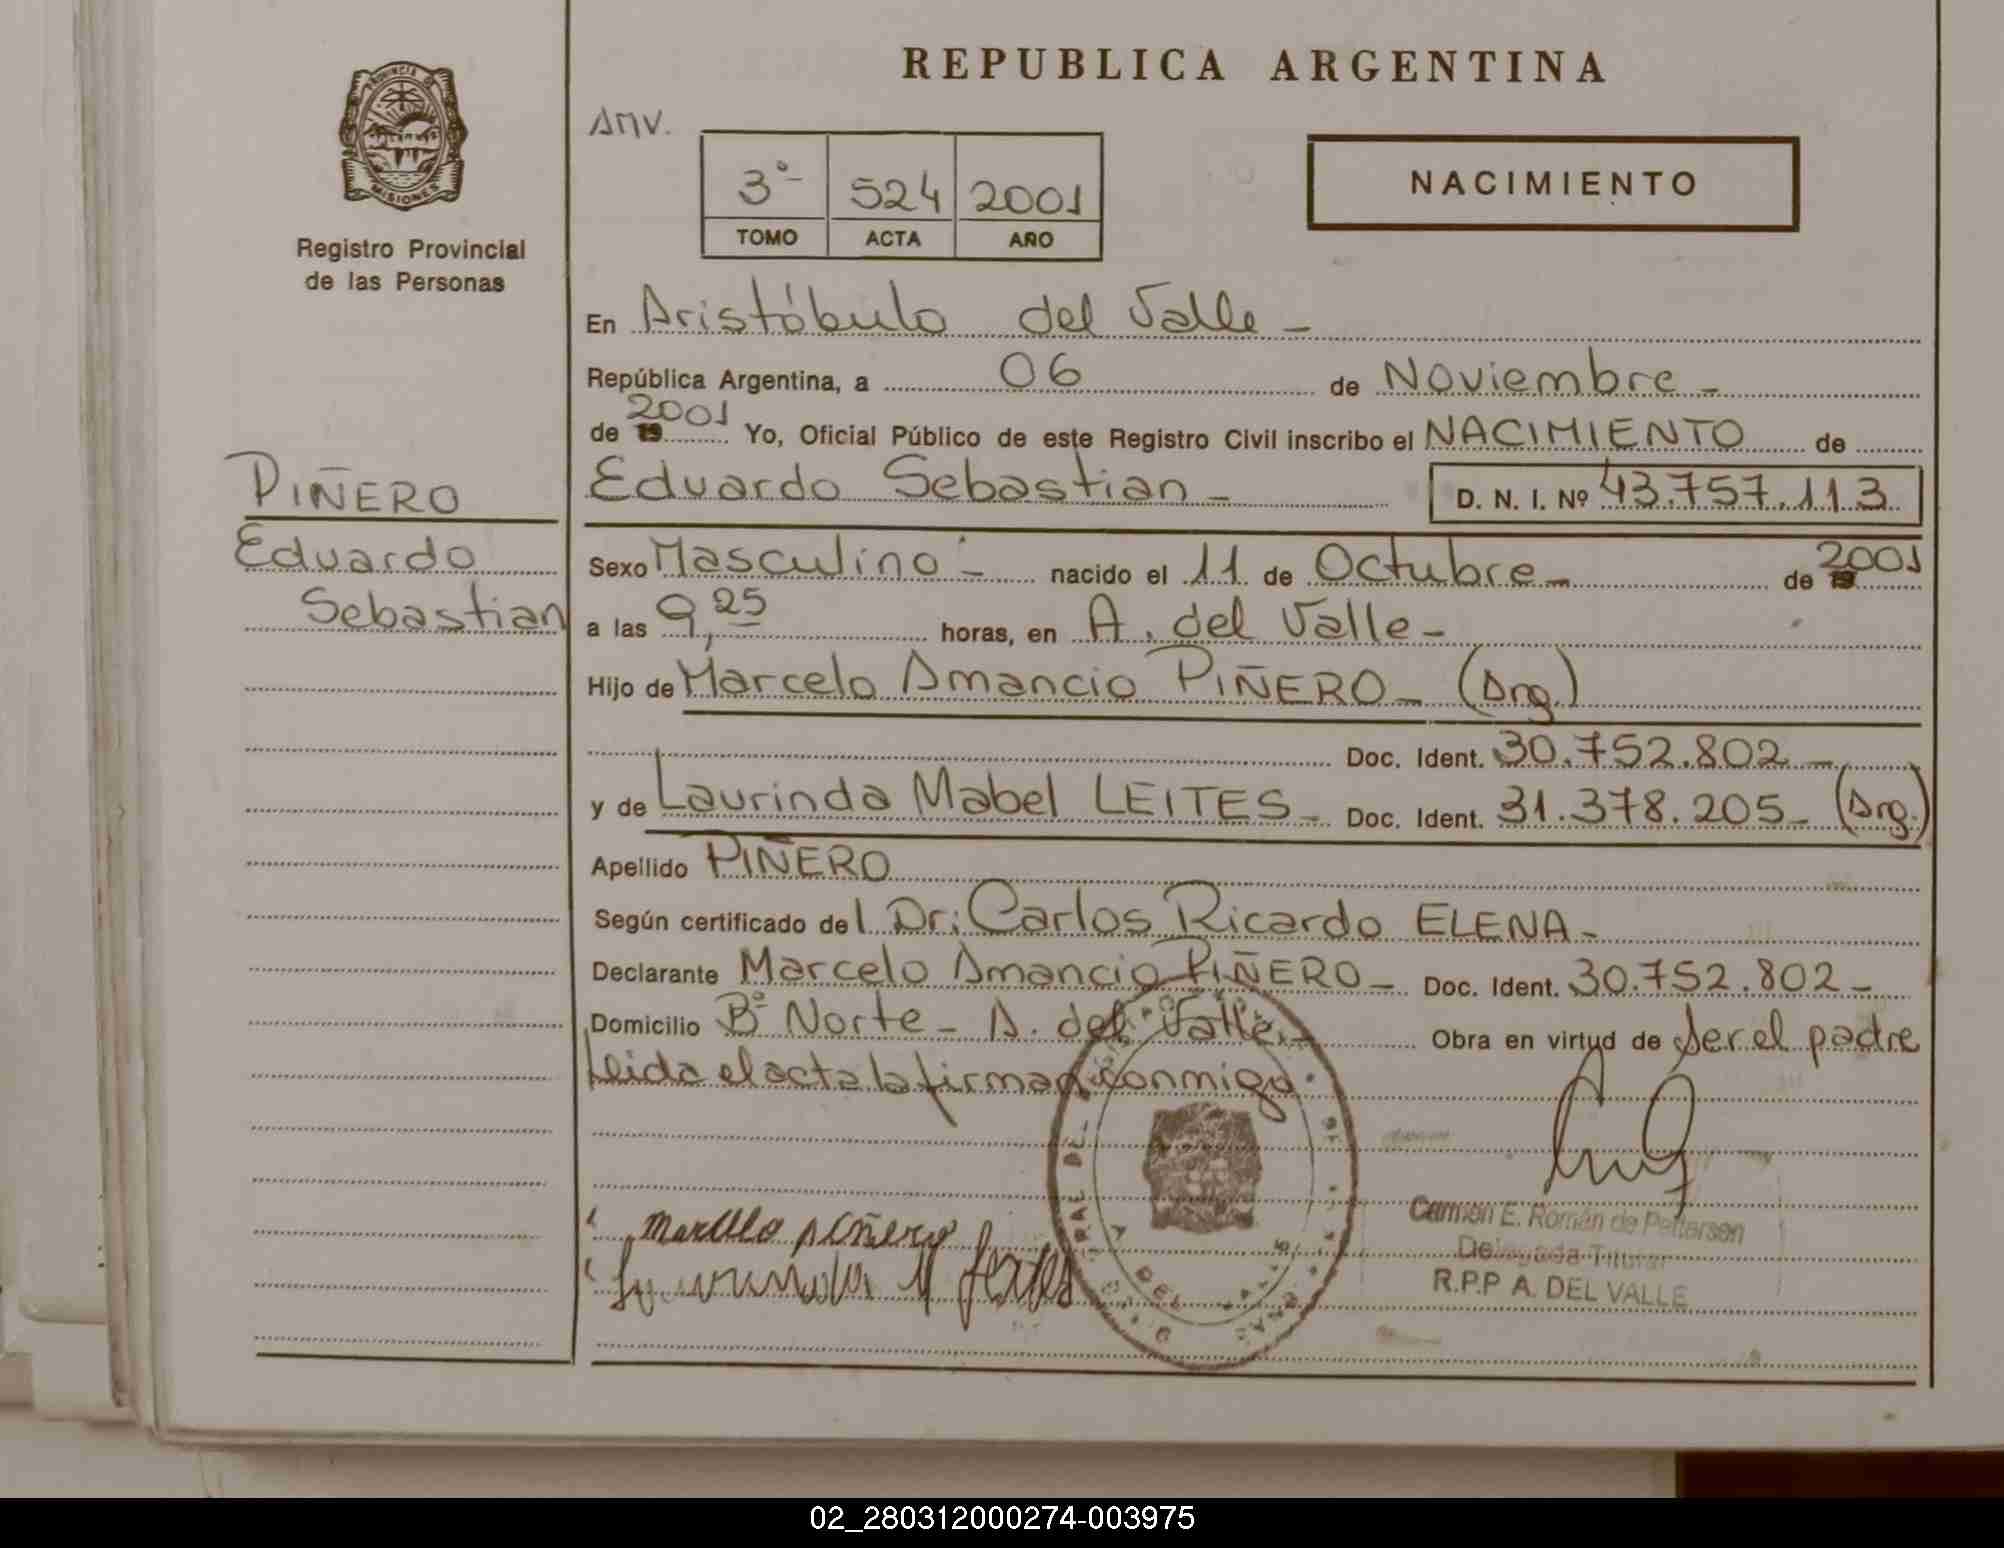 REPUBLICA ARGENTINA
PROVINCIA DE
MISIONES
Registro Provincial
de las Personas
AMV.
3º 524 2001
TOMO ACTA AÑO
NACIMIENTO
En Aristóbulo del Valle -
República Argentina, a 06 de Noviembre -
de 19 2001 Yo, Oficial Público de este Registro Civil inscribo el NACIMIENTO de
Eduardo Sebastian - D. N. I. Nº 43.757.113
PIÑERO
Eduardo
Sebastian
Sexo Masculino - nacido el 11 de Octubre - de 19 2001
a las 9,25 horas, en A. del Valle -
Hijo de Marcelo Amancio PIÑERO - (Arg.)
Doc. Ident. 30.752.802 -
y de Laurinda Mabel LEITES - Doc. Ident. 31.378.205 - (Arg.)
Apellido PIÑERO
Según certificado del Dr: Carlos Ricardo ELENA -
Declarante Marcelo Amancio PIÑERO - Doc. Ident. 30.752.802 -
Domicilio Bº Norte - A. del Valle - Obra en virtud de ser el padre
Leida el acta la firman conmigo
Marcelo piñero
Carmen E. Román de Pettersen
Delegada Titular
R.P.P A. DEL VALLE
02_280312000274-003975